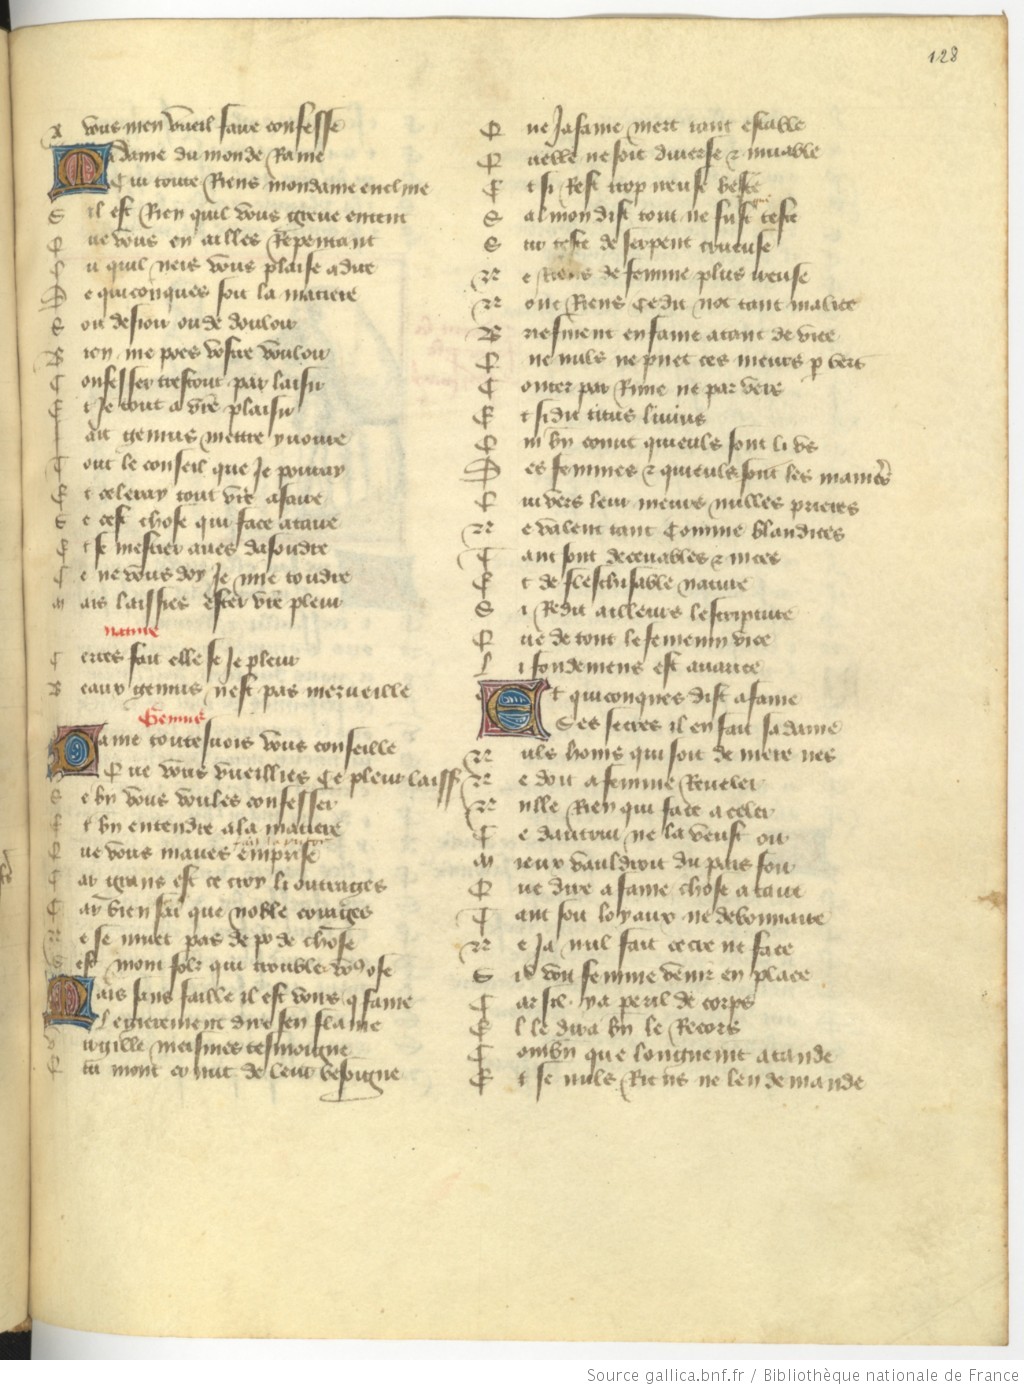 128
A vous men vueil faire confesse
Madame du monde Raine
Cui toute Riens mondaine encline
S il est Rien quil vous grieve entent
Q ue vous en ailles Repentant
O u quil neis vous plaise a dire
D e quiconques soit la matiere
S oit desioir ou de douloir
B ien me poes vostre vouloir
C onfesser trestout par laisir
E t Je tout a vre plaisir
F ait genius mettre y norre
T out le conseil que Je pourray
E t celeray tout vre afaire
S e cest chose qui face a taire
E t se mestier aves dasoudre
C e ne vous doy Je mie toudre
M ais laissies ester vre pleur
nature
C ertes fait elle se Je pleur
B eaux genius nest pas merveille
Genius
Dame toutesvois vous conseille
Q ue vous vueillies ce pleur laissr
S e bn vous voules confesser
E t bn entendre a la matiere
Q ue vous maves emprise
C ar grans est ce croy li outrages
C ar bien sai que nobles corages
N e se muet pas de po de chose
S est mont folz qui troubler vous ose
Mais sans faille il est voirs q fame
Legierement dire sen flame
V irgille meismes tesmoigne
Q ui mont connut de leur besoigne
Q ue Ja fame niert tant estable
Q uelle ne soit diverse & muable
E t si Rest trop neuse beste
S almon dist tout ne fust teste
S ur teste de serpent crueuse
N e Riens de femme plus ireuse
N onc Riens ce dit not tant malice
B riesment en fame a tant de vice
Q ue nuls ne puet ces meurs p vers
C onter par Rime ne par vers
E t si dit titus livius
Q ui bn connut quieuls sont li us
D es femmes & quieuls sont les manieres
Q ui vers leur meurs nulles prieres
N e valent tant comme blandices
T ant sont decevables & nices
E t de fleschisable nature
S i Redit ailleurs lescripture
Q ue de tout le femenin vice
L i fondemens est avarice
Et quiconques dist a fame
Ses secres il en fait sa dame
N uls homs qui soit de mere nes
N e doit a femme Reveler
N ulle Rien qui face a celer
C e dautrui ne la veust oir
M ieux vauldroit du pais foir
Q ue dire a fame chose a taire
T ant soit loyaux ne debonnaire
N e Ja nul fait secre ne face
S il voit femme venir en place
C ar sil y a peril de corps
E lle dira bn le Recors
C ombn que longuemt atande
E t se nuls Riens ne len demande
Source gallica.bnf.fr / Bibliothèque nationale de France